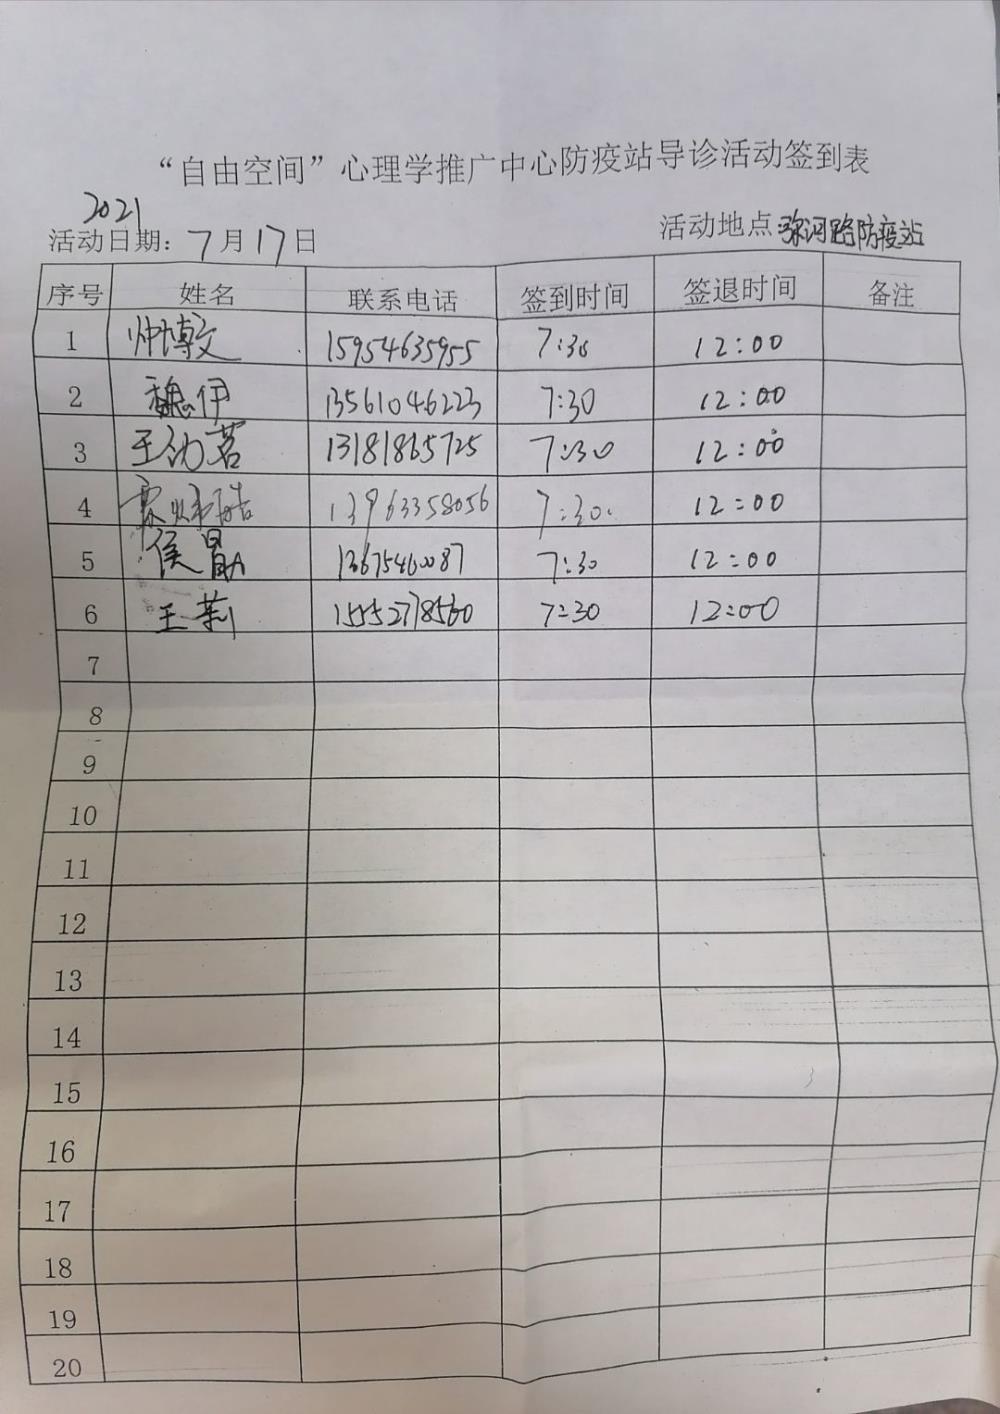 “自由空间”心理学推广中心防疫站导诊活动签到表
2021
活动日期：7月17日 活动地点 弥河路防疫站
序号 姓名 联系电话 签到时间 签退时间 备注
1 帅博文 15954635955 7:30 12:00
2 魏伊 13561046223 7:30 12:00
3 王 茗 13181865725 7:30 12:00
4 13963358056 7:30 12:00
5 侯勗 13675460087 7:30 12:00
6 王莉 15552778560 7:30 12:00
7
8
9
10
11
12
13
14
15
16
17
18
19
20